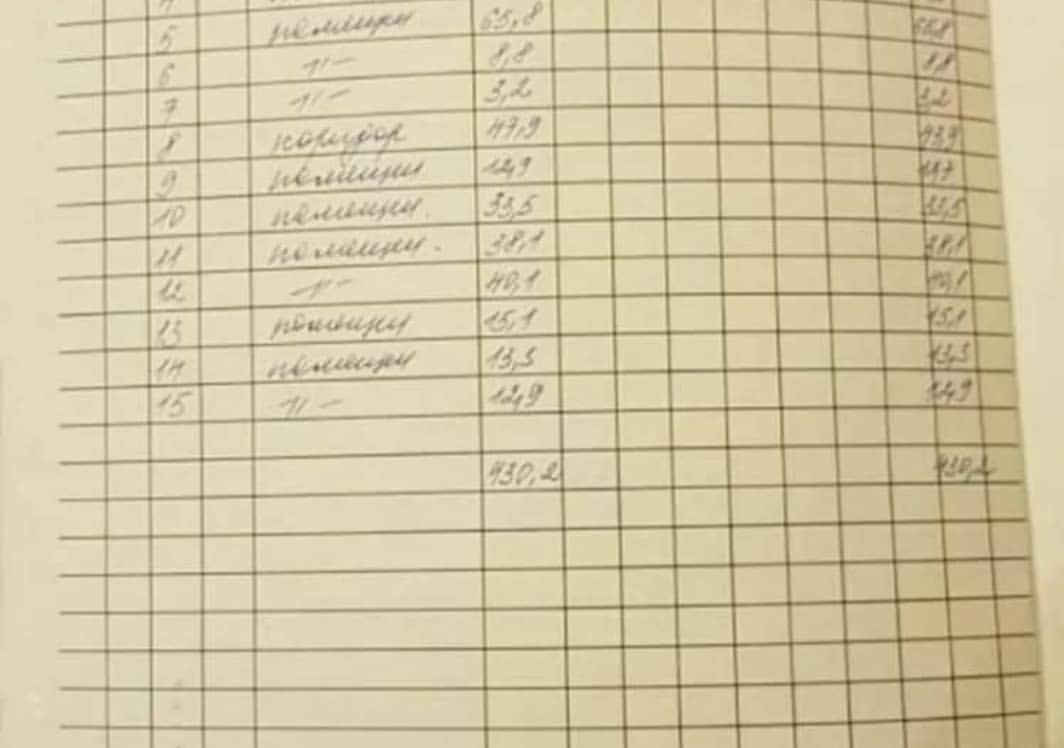 5 помещен 65,8
6 -"- 8,8 8,8
7 -"- 3,2 3,2
8 коридор 47,9
9 помещен 12,9
10 помещен. 33,5 33,5
11 помещен. 38,1 38,1
12 -"- 40,1 40,1
13 помещен 15,1 15,1
14 помещен 13,3 13,3
15 -"- 12,9 12,9
430,2 430,2